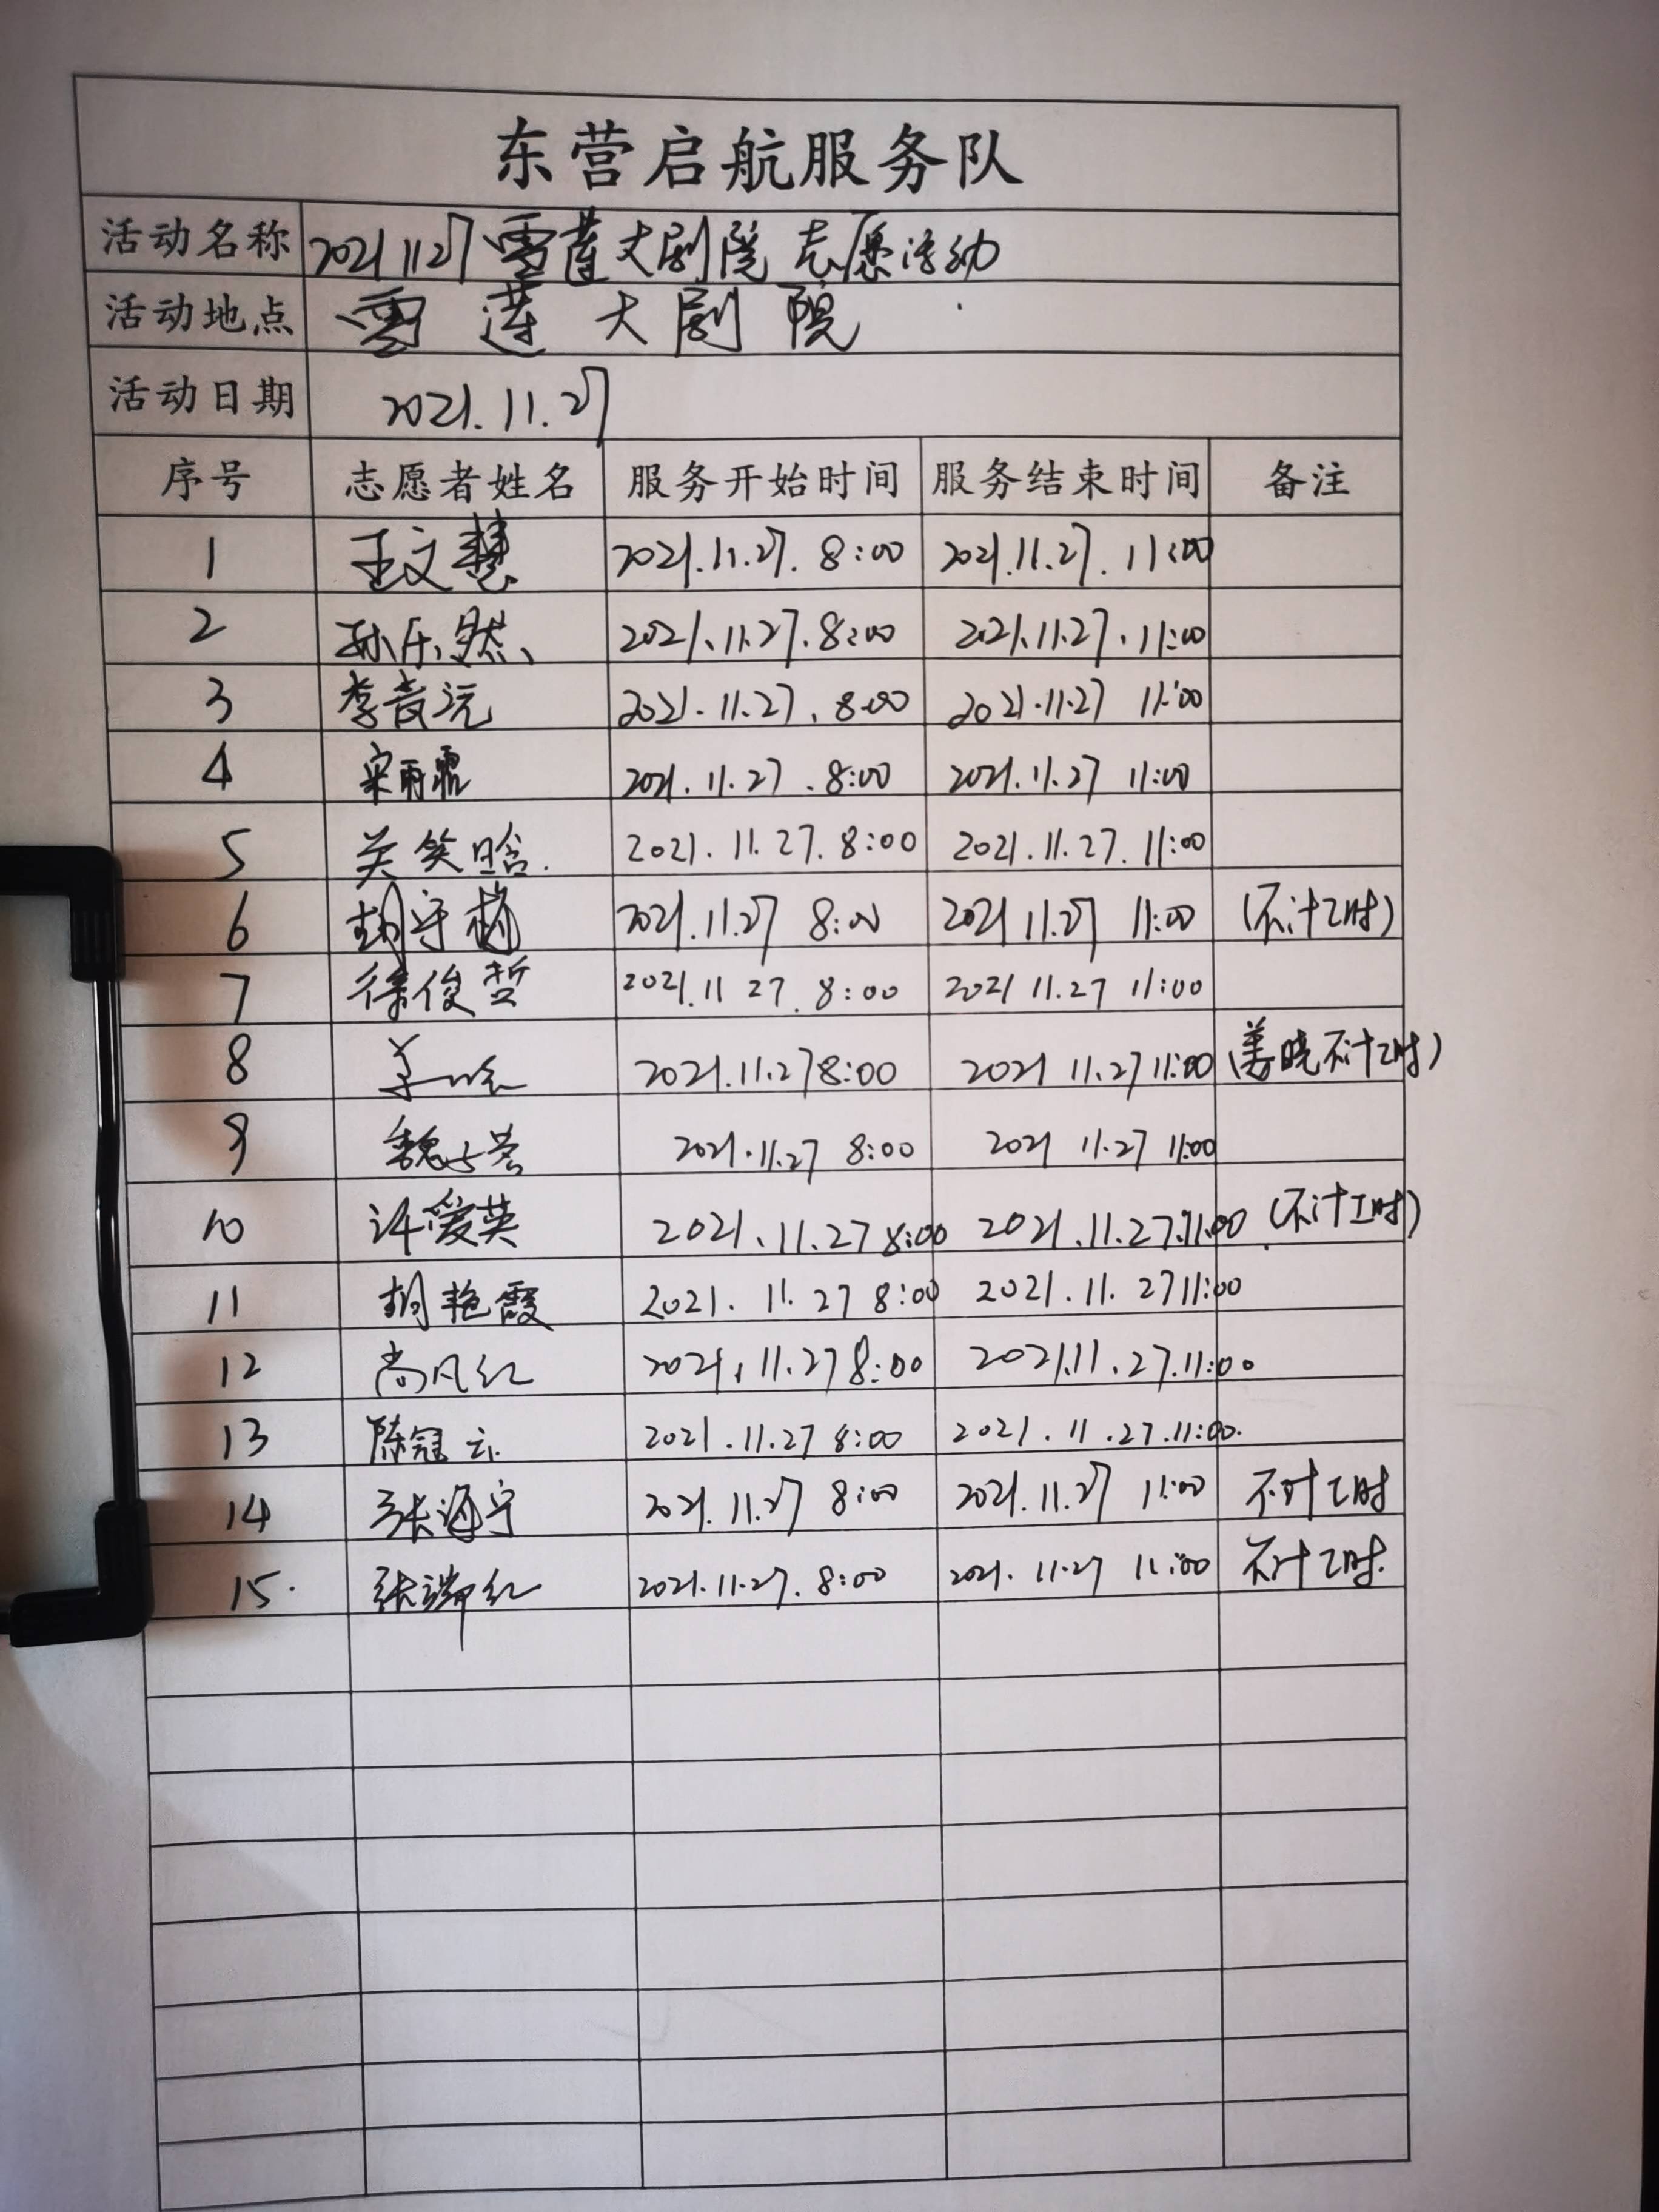 东营启航服务队
活动名称 20211127雪莲大剧院志愿活动
活动地点 雪莲大剧院
活动日期 2021.11.27
序号 志愿者姓名 服务开始时间 服务结束时间 备注
1 王文慧 2021.11.27. 8:00 2021.11.27. 11:00
2 孙乐然 2021.11.27.8:00 2021.11.27.11:00
3 李音沅 2021.11.27.8:00 2021.11.27 11:00
4 宋雨霏 2021.11.27.8:00 2021.11.27 11:00
5 关笑晗. 2021.11.27.8:00 2021.11.27.11:00
6 胡守楠 2021.11.27 8:00 2021 11.27 11:00 (不计工时)
7 徐俊哲 2021.11 27.8:00 2021 11.27 11:00
8 2021.11.27 8:00 2021 11.27 11:00 (姜晓不计工时)
9 2021.11.27 8:00 2021 11.27 11:00
10 许爱英 2021.11.27 8:00 2021.11.27.11:00 (不计工时)
11 胡艳霞 2021.11.27 8:00 2021.11.27 11:00
12 尚凤红 2021.11.27 8:00 2021.11.27.11:00
13 陈冠云 2021.11.27 8:00 2021.11.27.11:00.
14 张海宁 2021.11.27 8:00 2021.11.27 11:00 不计工时
15. 张瑞红 2021.11.27.8:00 2021.11.27 11:00 不计工时.